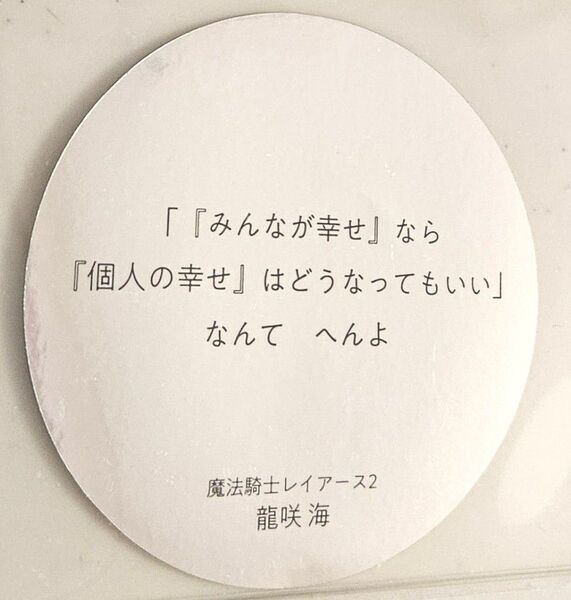 「『みんなが幸せ』なら
『個人の幸せ』はどうなってもいい」
なんて　へんよ
魔法騎士レイアース2
龍咲 海